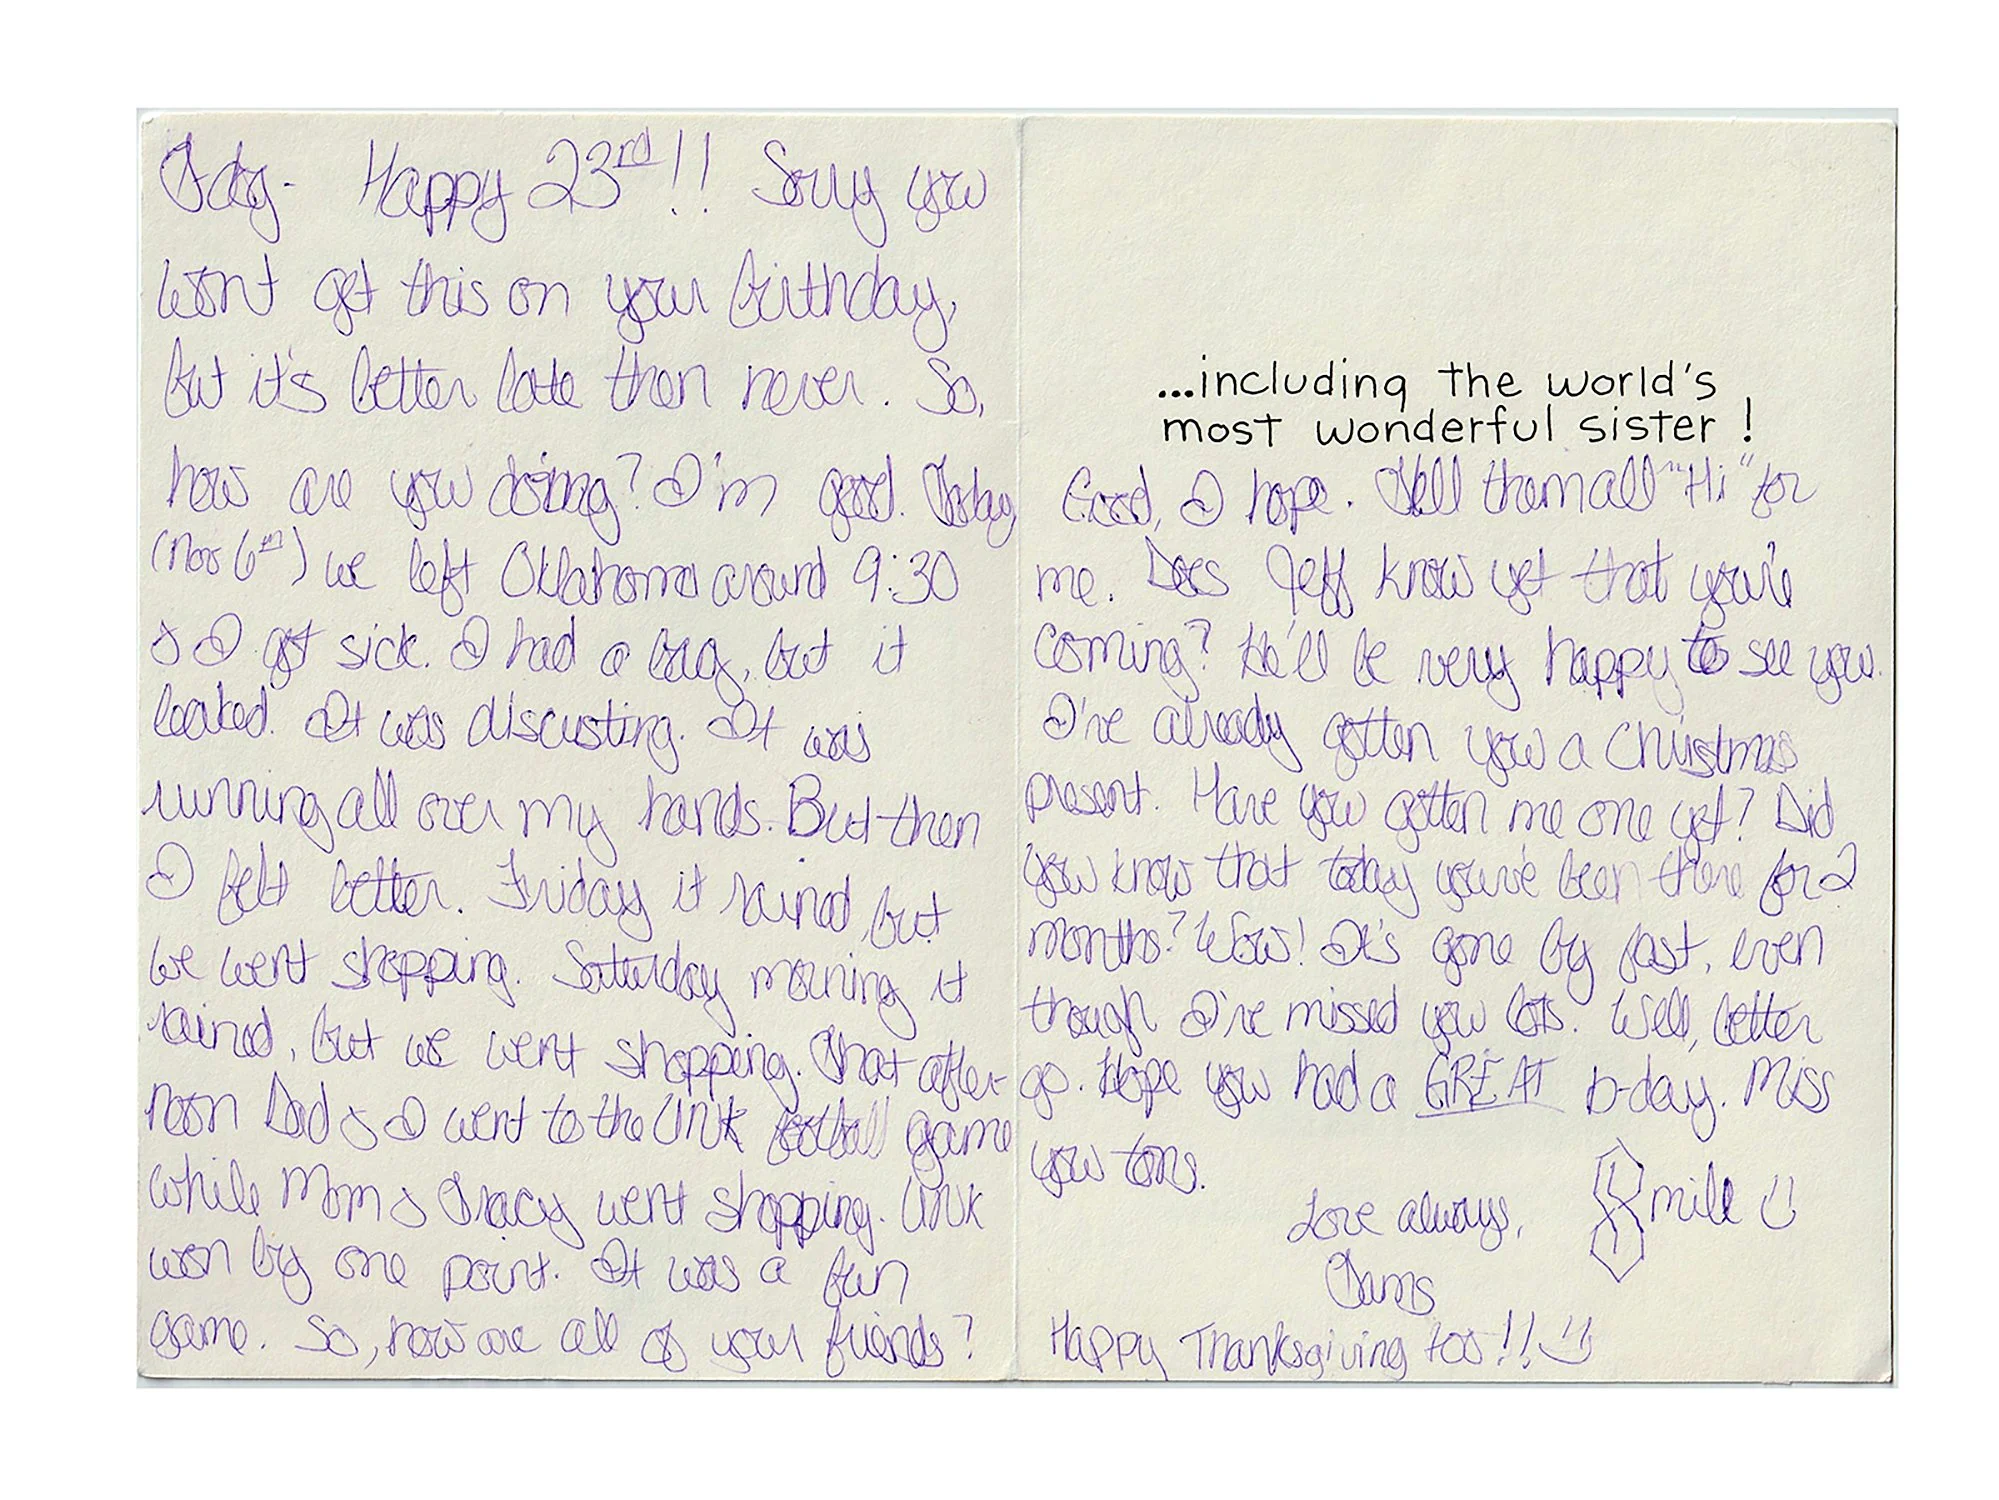 Happy 23rd!! Sorry you
wont get this on your birthday,
but it's better late then never. So,
how are you doing? I'm good. Today
(Nov 6th) we left Oklahoma around 9:30
& I got sick. I had a bag, but it
leaked. It was discusting. It was
running all over my hands. But then
I felt better. Friday it rained but
we went shopping. Saturday morning it
rained, but we went shopping. That after-
noon Dad & I went to the UNK football game
while Mom & Tracy went shopping. UNK
won by one point. It was a fun
game. So, how are all of your friends?
...including the world's
most wonderful sister!
Good, I hope. Tell them all "Hi" for
me. Does Jeff know yet that you're
coming? He'll be very happy to see you.
I've already gotten you a Christmas
present. Have you gotten me one yet? Did
you know that today you've been there for 2
months? Wow! It's gone by fast, even
though I've missed you lots. Well, better
go. Hope you had a GREAT b-day. Miss
you tons.
Love always,
Smile
Happy Thanksgiving too!!